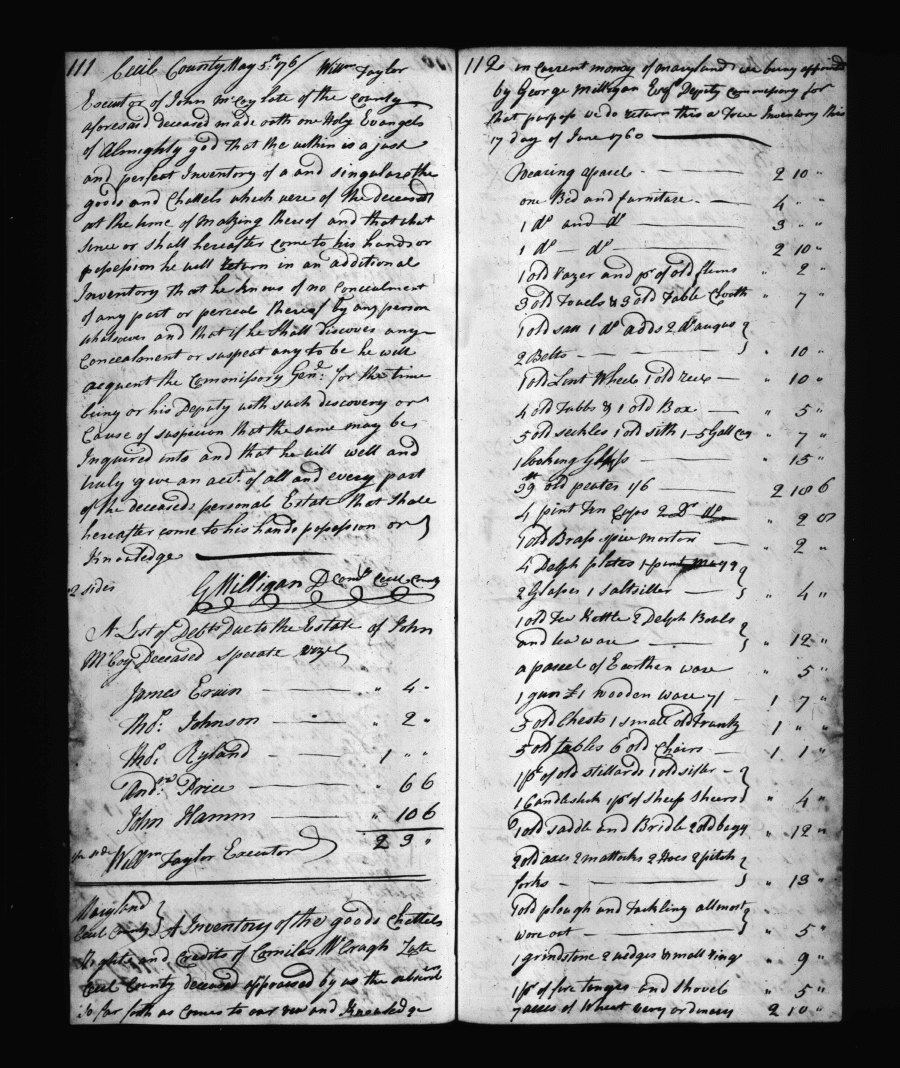 111 Cecil County May 5th 176/ Willm Taylor
Excutor of John McCoy late of the County
aforesaid deceased made oath one Holy Evangels
of Almighty god that the within is a just
and perfect Inventory of a and singulars the
goods and Chattels which were of the deceased
at the time of Making thereof and that what
since or shall hereafter come to his hands or
possession he will return in an additional
Inventory that he knows of no Concealment
of any part or perceele thereof by any person
whatsoever and that if he shall discover any
Concealment or suspect any to be he will
acquent the Comonissory Genl: for the time
being or his Deputy with such discovery or
Cause of suspicion that the same may be
Inquired into and that he will well and
truly give an acct. of all and every part
of the deceaseds personal Estate that shall
hereafter come to his hands possession or
Knowledge
2 sides GMilligan D Comy Cecil County
A List of Debts Due to the Estate of John
McCoy Deceased sperate vizt
James Erwin " 4 "
Tho: Johnson " 2 "
Tho: Ryland 1 " "
Andrw: Price " 6 6
John Hamm " 10 6
2 3 "
Willm Taylor Executor
Maryland
Cecil County A Inventory of the goods Chattels
and Credits of Cornilas McCragh Late
Cecil County deceased appraised by us the
So far forth as comes to our vew and Knowledge
112 in Current money of Maryland we being appointed
by George Milligan Esqr Deputy Commissary for
that purpose we do return this a True Inventory this
17 day of June 1760
Wearing aparel 2 10 "
one Bed and furniture 4 " "
1 do and do 3 " "
1 do do 2 10 "
1 old razer and pr of old flems " 2 "
3 old Touels & 3 old Table Cloath " 7 "
1 old saw 1 do adds 2 do augus
2 Belts " 10 "
1 old Lint Wheele 1 old reel " 10 "
4 old Tubbs & 1 old Box " 5 "
5 old seckles 1 old sith 1-5 Gall cag " 7 "
1 looking Glass " 15 "
39 lb old peuter 1/6 2 18 6
4 pint Ten Cups 2 Dr do " 2 8
1 old Brass spice mortor " 2 "
4 Delph plates 1 pint Mugg
2 Glasses 1 saltsillar " 4 "
1 old Tea Kettle 2 Delph Bowls
and tea ware " 12 "
a parcel of Earthen ware " 5 "
1 gun £1 wooden ware 7/ 1 7 "
3 old Chests 1 small old trunk 1 " "
3 old tables 6 old Chairs 1 1 "
1 pr of old stillards 1 old sifter
1 Candlestick 1 pr of Sheep Shears " 4 "
1 old saddle and Bridle 2 old bags " 12 "
2 old axes 2 mattocks 2 Hoes 2 pitch
forks " 13 "
1 old plough and tackling allmost
wore out " 5 "
1 grindstone 2 wedges & small rings " 9 "
1 pr of fire tonges and shovel " 5 "
7 acres of Wheat very ordinary 2 10 "